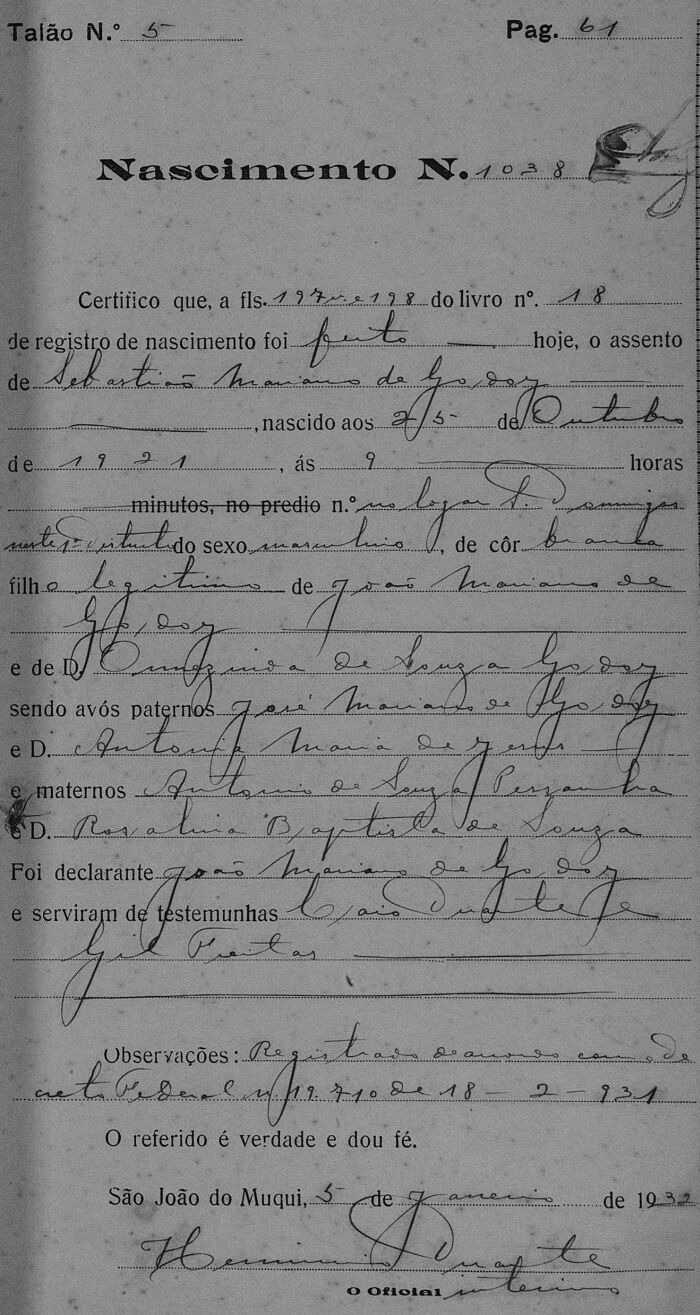 Talão N.º 5 Pag. 61
Nascimento N. 1038
Certifico que, a fls. 197v. e 198 do livro nº. 18
de registro de nascimento foi feito hoje, o assento
de Sebastião Mariano de Godoy
, nascido aos 25 de Outubro
de 1921, ás 9 horas
minutos, no predio n.º no logar S. Domingos
neste 1º districto do sexo masculino, de côr branca
filho legitimo de João Mariano de
Godoy
e de D. de Souza Godoy
sendo avós paternos José Mariano de Godoy
e D. Antonia Maria de Jesus
e maternos Antonio de Souza
e D. Rosalina Baptista de Souza
Foi declarante João Mariano de Godoy
e serviram de testemunhas Caio Duarte e
Gil Freitas
Observações: Registrado de accordo com o de
creto Federal n. 19.710 de 18-2-931
O referido é verdade e dou fé.
São João do Muqui, 5 de Janeiro de 1932
Herminio Duarte
O Oficial interino